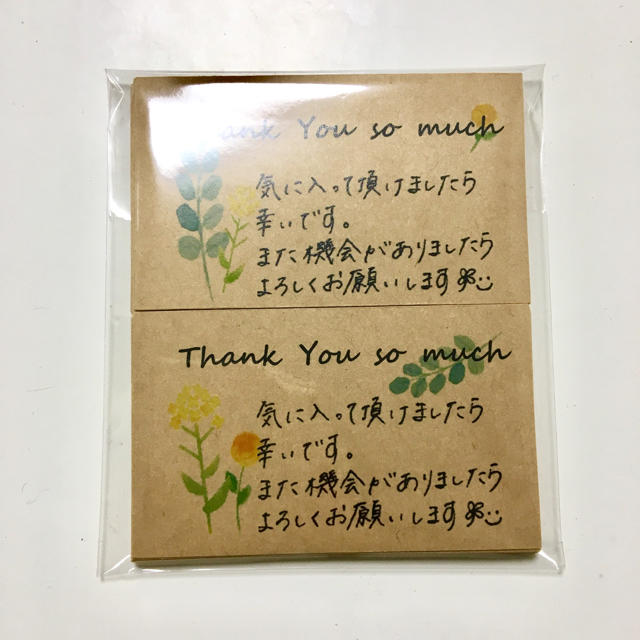 Thank You so much
気に入って頂けましたら
幸いです。
また機会がありましたら
よろしくお願いします
Thank You so much
気に入って頂けましたら
幸いです。
また機会がありましたら
よろしくお願いします